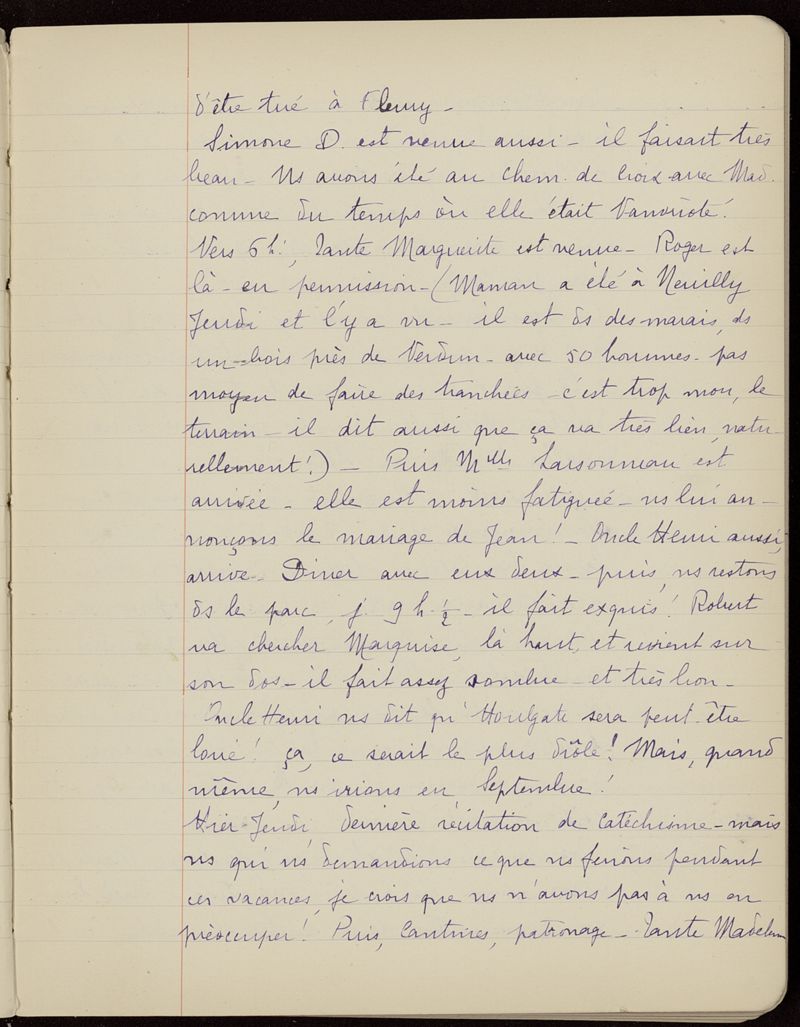 d'être tué à Fleury -
Simone D. est venue aussi - il faisait très
beau - Ns avons été au chem. de Croix avec Mad.
comme du temps où elle était
Vers 6h!, Tante Marguerite est venue - Roger est
là - en permission - (Maman a été à Neuilly
Jeudi et l'y a vu - il est ds des marais, ds
un bois près de Verdun - avec 50 hommes - pas
moyen de faire des tranchées - c'est trop mou, le
terrain - il dit aussi que ça va très bien, natu-
rellement!) - Puis Mlle Larsonneau est
arrivée - elle est moins fatiguée - ns lui an-
nonçons le mariage de Jean! - Oncle Henri aussi,
arrive - Diner avec eux deux - puis, ns restons
ds le parc, j. 9 h. ½ - il fait exquis! Robert
va chercher Marquise, là haut, et revient sur
son dos - il fait assez sombre - et très bon -
Oncle Henri ns dit qu'Houlgate sera peut-être
loué! ça, ce serait le plus drôle! Mais, quand
même, ns irions en Septembre!
Hier Jeudi, dernière récitation de catéchisme - mais
ns qui ns demandions ce que ns ferions pendant
ces vacances, je crois que ns n'avons pas à ns en
préoccuper! Puis, Cantines, patronage - Tante Madeleine